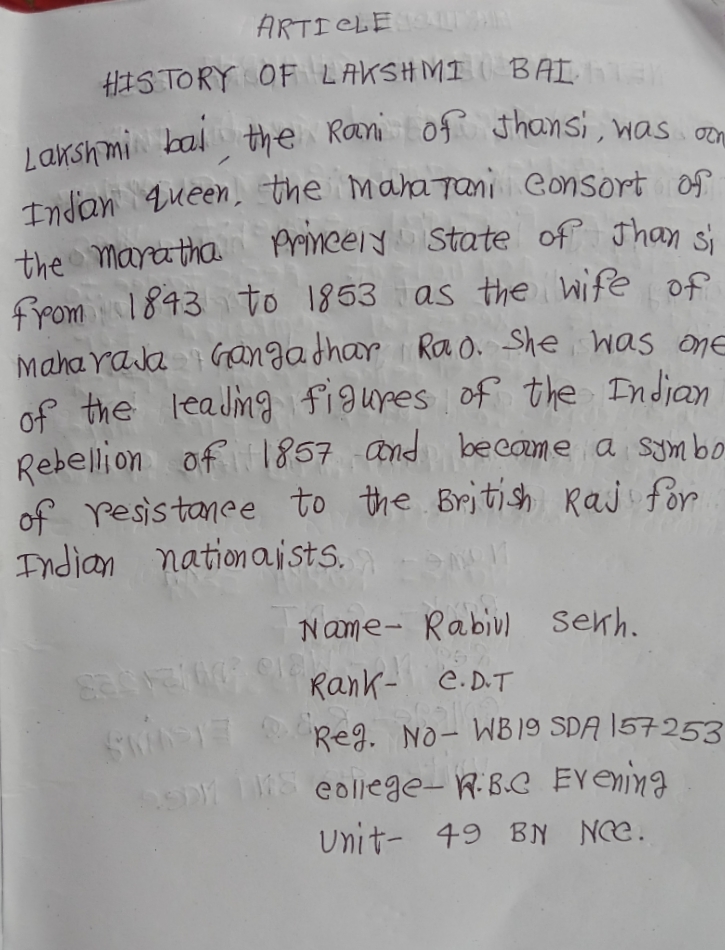 ARTICLE
HISTORY OF LAKSHMI BAI
Lakshmi bai, the Rani of Jhansi, was an
Indian queen, the Maharani Consort of
the maratha Princely State of Jhansi
from 1843 to 1853 as the wife of
Maharaja Gangadhar Rao. She was one
of the leading figures of the Indian
Rebellion of 1857 and became a symbo
of resistance to the British Raj for
Indian nationalists.
Name- Rabiul Sekh.
Rank- C.D.T
Reg. No- WB19SDA157253
College- R.B.C Evening
Unit- 49 BN NCC.